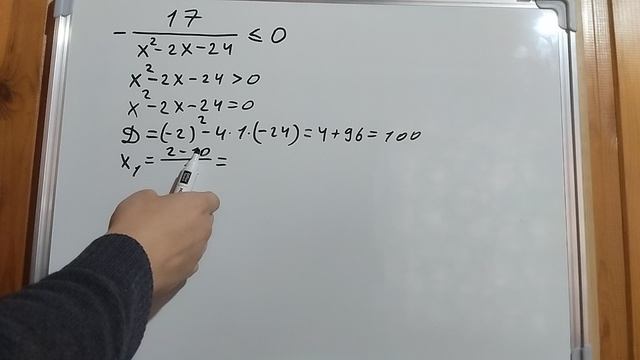 - 17/(x² - 2x - 24) ≤ 0
x² - 2x - 24 > 0
x² - 2x - 24 = 0
D = (-2)² - 4 · 1 · (-24) = 4 + 96 = 100
x₁ = (2 - 10)/ =